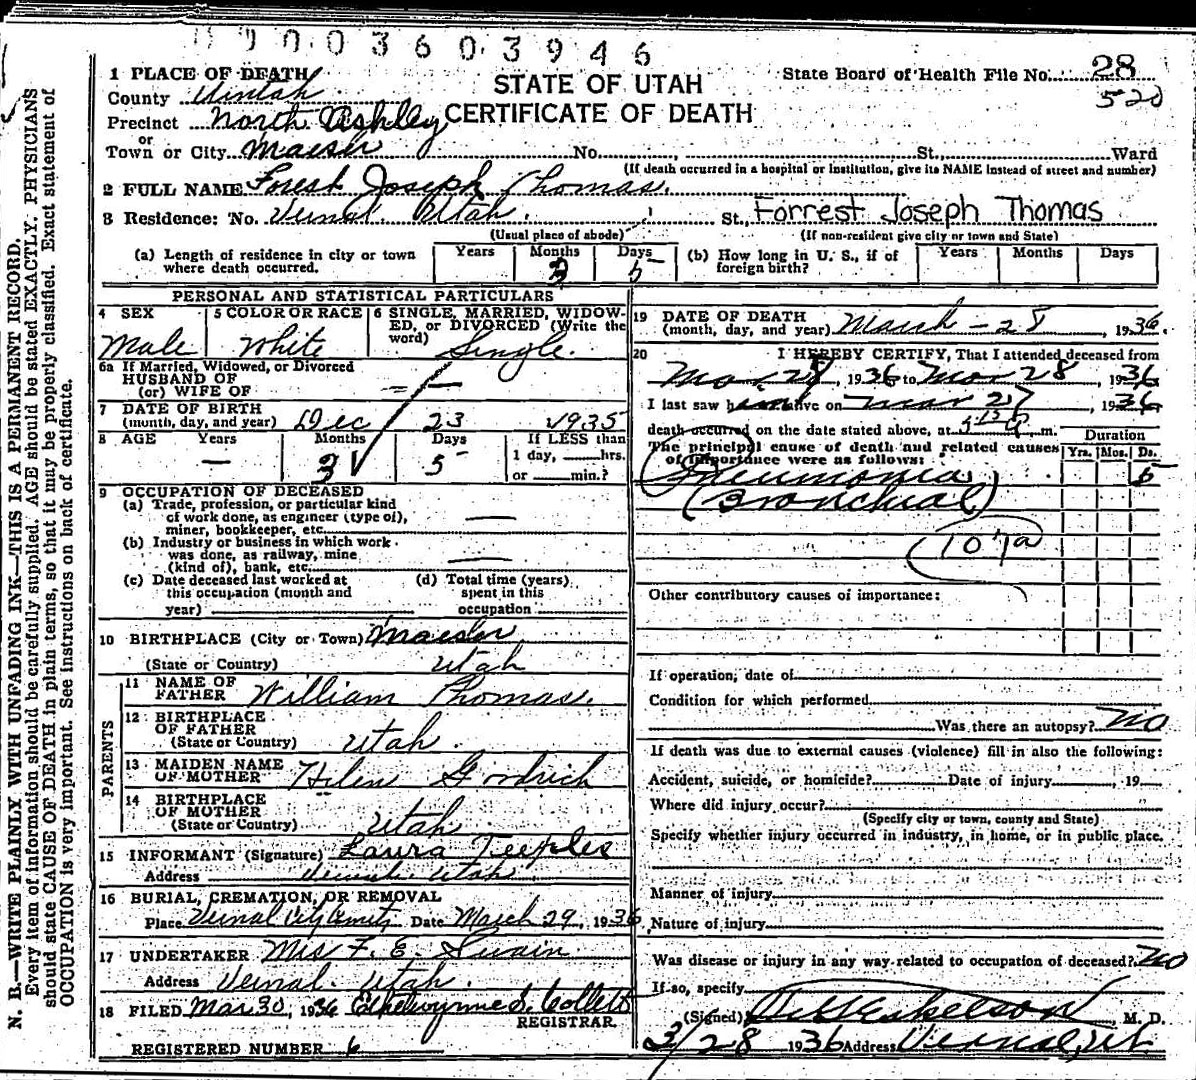 09003603946
STATE OF UTAH
CERTIFICATE OF DEATH
State Board of Health File No. 28
520
1 PLACE OF DEATH
County Uintah
Precinct North Ashley
or
Town or City Maeser No. , St., Ward
(If death occurred in a hospital or institution, give its NAME instead of street and number)
2 FULL NAME Forest Joseph Thomas.
3 Residence: No. Vernal Utah. St., Forrest Joseph Thomas
(Usual place of abode) (If non-resident give city or town and State)
(a) Length of residence in city or town where death occurred. Years Months 3 Days 5 (b) How long in U. S., if of foreign birth? Years Months Days
PERSONAL AND STATISTICAL PARTICULARS
4 SEX Male
5 COLOR OR RACE White
6 SINGLE, MARRIED, WIDOWED, or DIVORCED (Write the word) Single.
6a If Married, Widowed, or Divorced
HUSBAND OF
(or) WIFE OF
7 DATE OF BIRTH
(month, day, and year) Dec 23 1935
8 AGE Years — Months 3 Days 5 If LESS than
1 day, hrs.
or min.?
9 OCCUPATION OF DECEASED
(a) Trade, profession, or particular kind
of work done, as engineer (type of),
miner, bookkeeper, etc. —
(b) Industry or business in which work
was done, as railway, mine
(kind of), bank, etc. —
(c) Date deceased last worked at
this occupation (month and
year)
(d) Total time (years)
spent in this
occupation
10 BIRTHPLACE (City or Town) Maeser
(State or Country) Utah
PARENTS
11 NAME OF
FATHER William Thomas.
12 BIRTHPLACE
OF FATHER
(State or Country) Utah.
13 MAIDEN NAME
OF MOTHER Helen Goodrich
14 BIRTHPLACE
OF MOTHER
(State or Country) Utah.
15 INFORMANT (Signature) Laura Teeples
Address Vernal Utah
16 BURIAL, CREMATION, OR REMOVAL
Place Vernal City Cemty Date March 29, 1936
17 UNDERTAKER Mrs F. E. Swain
Address Vernal Utah
18 FILED Mar 30, 1936 Ethelwynne S. Collett
REGISTRAR.
REGISTERED NUMBER 6
19 DATE OF DEATH
(month, day, and year) March - 28, 1936.
20 I HEREBY CERTIFY, That I attended deceased from
Mar. 28, 1936 to Mar 28, 1936
I last saw him alive on Mar 27, 1936
death occurred on the date stated above, at m.
The principal cause of death and related causes
of importance were as follows:
Duration
Yrs. Mos. Ds.
Pneumonia 5
(Bronchial)
107a
Other contributory causes of importance:
If operation, date of
Condition for which performed
Was there an autopsy? No
If death was due to external causes (violence) fill in also the following:
Accident, suicide, or homicide? Date of injury , 19
Where did injury occur?
(Specify city or town, county and State)
Specify whether injury occurred in industry, in home, or in public place.
Manner of injury
Nature of injury
Was disease or injury in any way related to occupation of deceased? No
If so, specify
(Signed) M. D.
3/28 1936 Address Vernal, Ut.
N. B.—WRITE PLAINLY WITH UNFADING INK—THIS IS A PERMANENT RECORD.
Every item of information should be carefully supplied. AGE should be stated EXACTLY. PHYSICIANS
should state CAUSE OF DEATH in plain terms, so that it may be properly classified. Exact statement of
OCCUPATION is very important. See instructions on back of certificate.